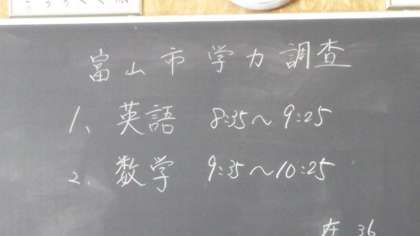 富山市学力調査
1、英語 8:35～9:25
2、数学 9:35～10:25
在 36